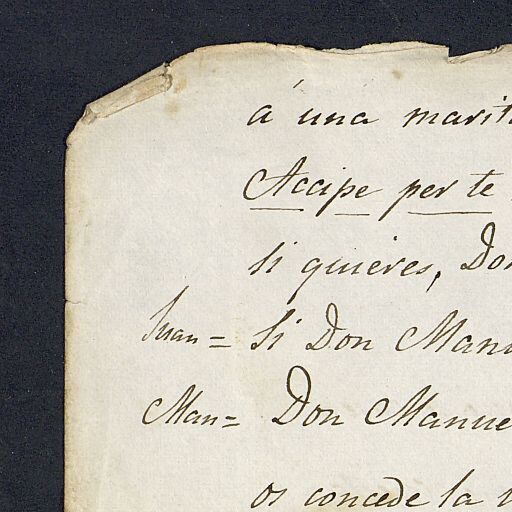 á una marit
Accipe per te
si quieres, Don
Juan = Si Don Manu
Man = Don Manue
os concede la